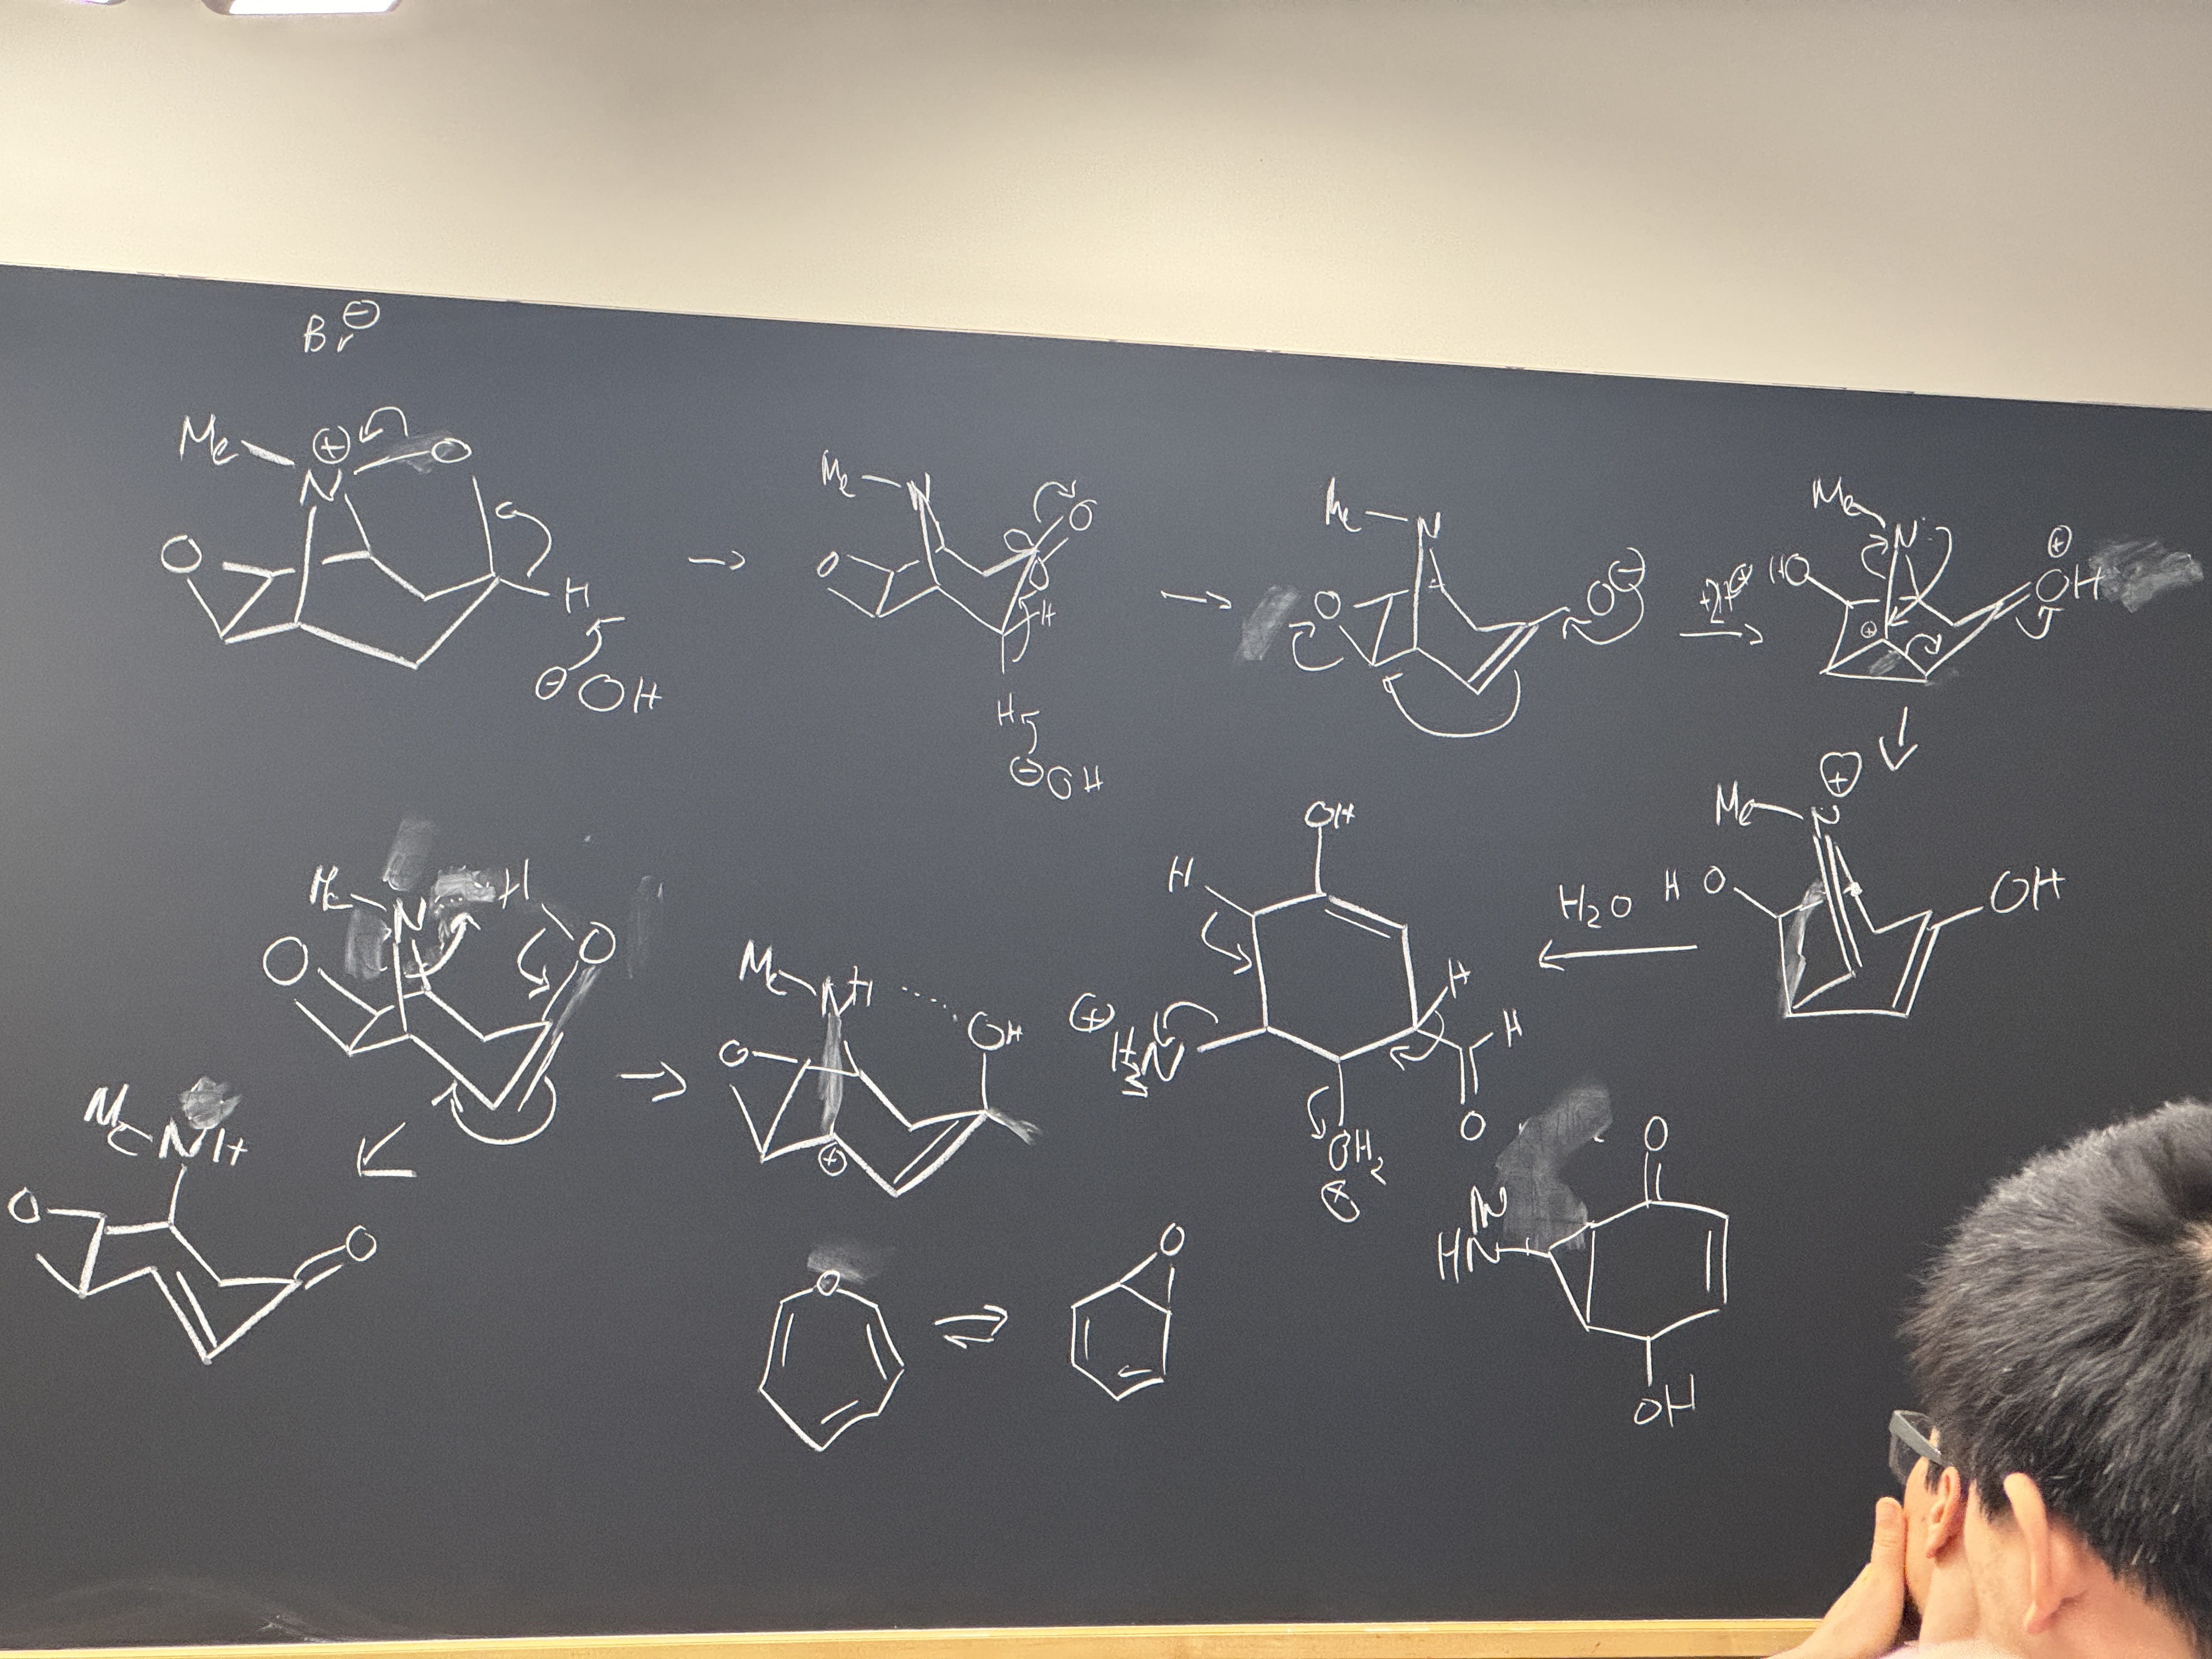 Br ⊖
Me N ⊕ O
O
H
⊖ OH
→
Me N O
O
H
H
⊖ OH
→
Me N
O
O ⊖
→
Me N
HO
⊕
OH
⊕
↓
Me N ⊕
HO
OH
H₂O
←
OH
H
H
⊕ H₃N
H
O
OH₂
⊕
Me N H
O
O
→
Me NH
OH
O
⊕
↙
Me NH
O
O
O
⇌
O
O
HN
OH